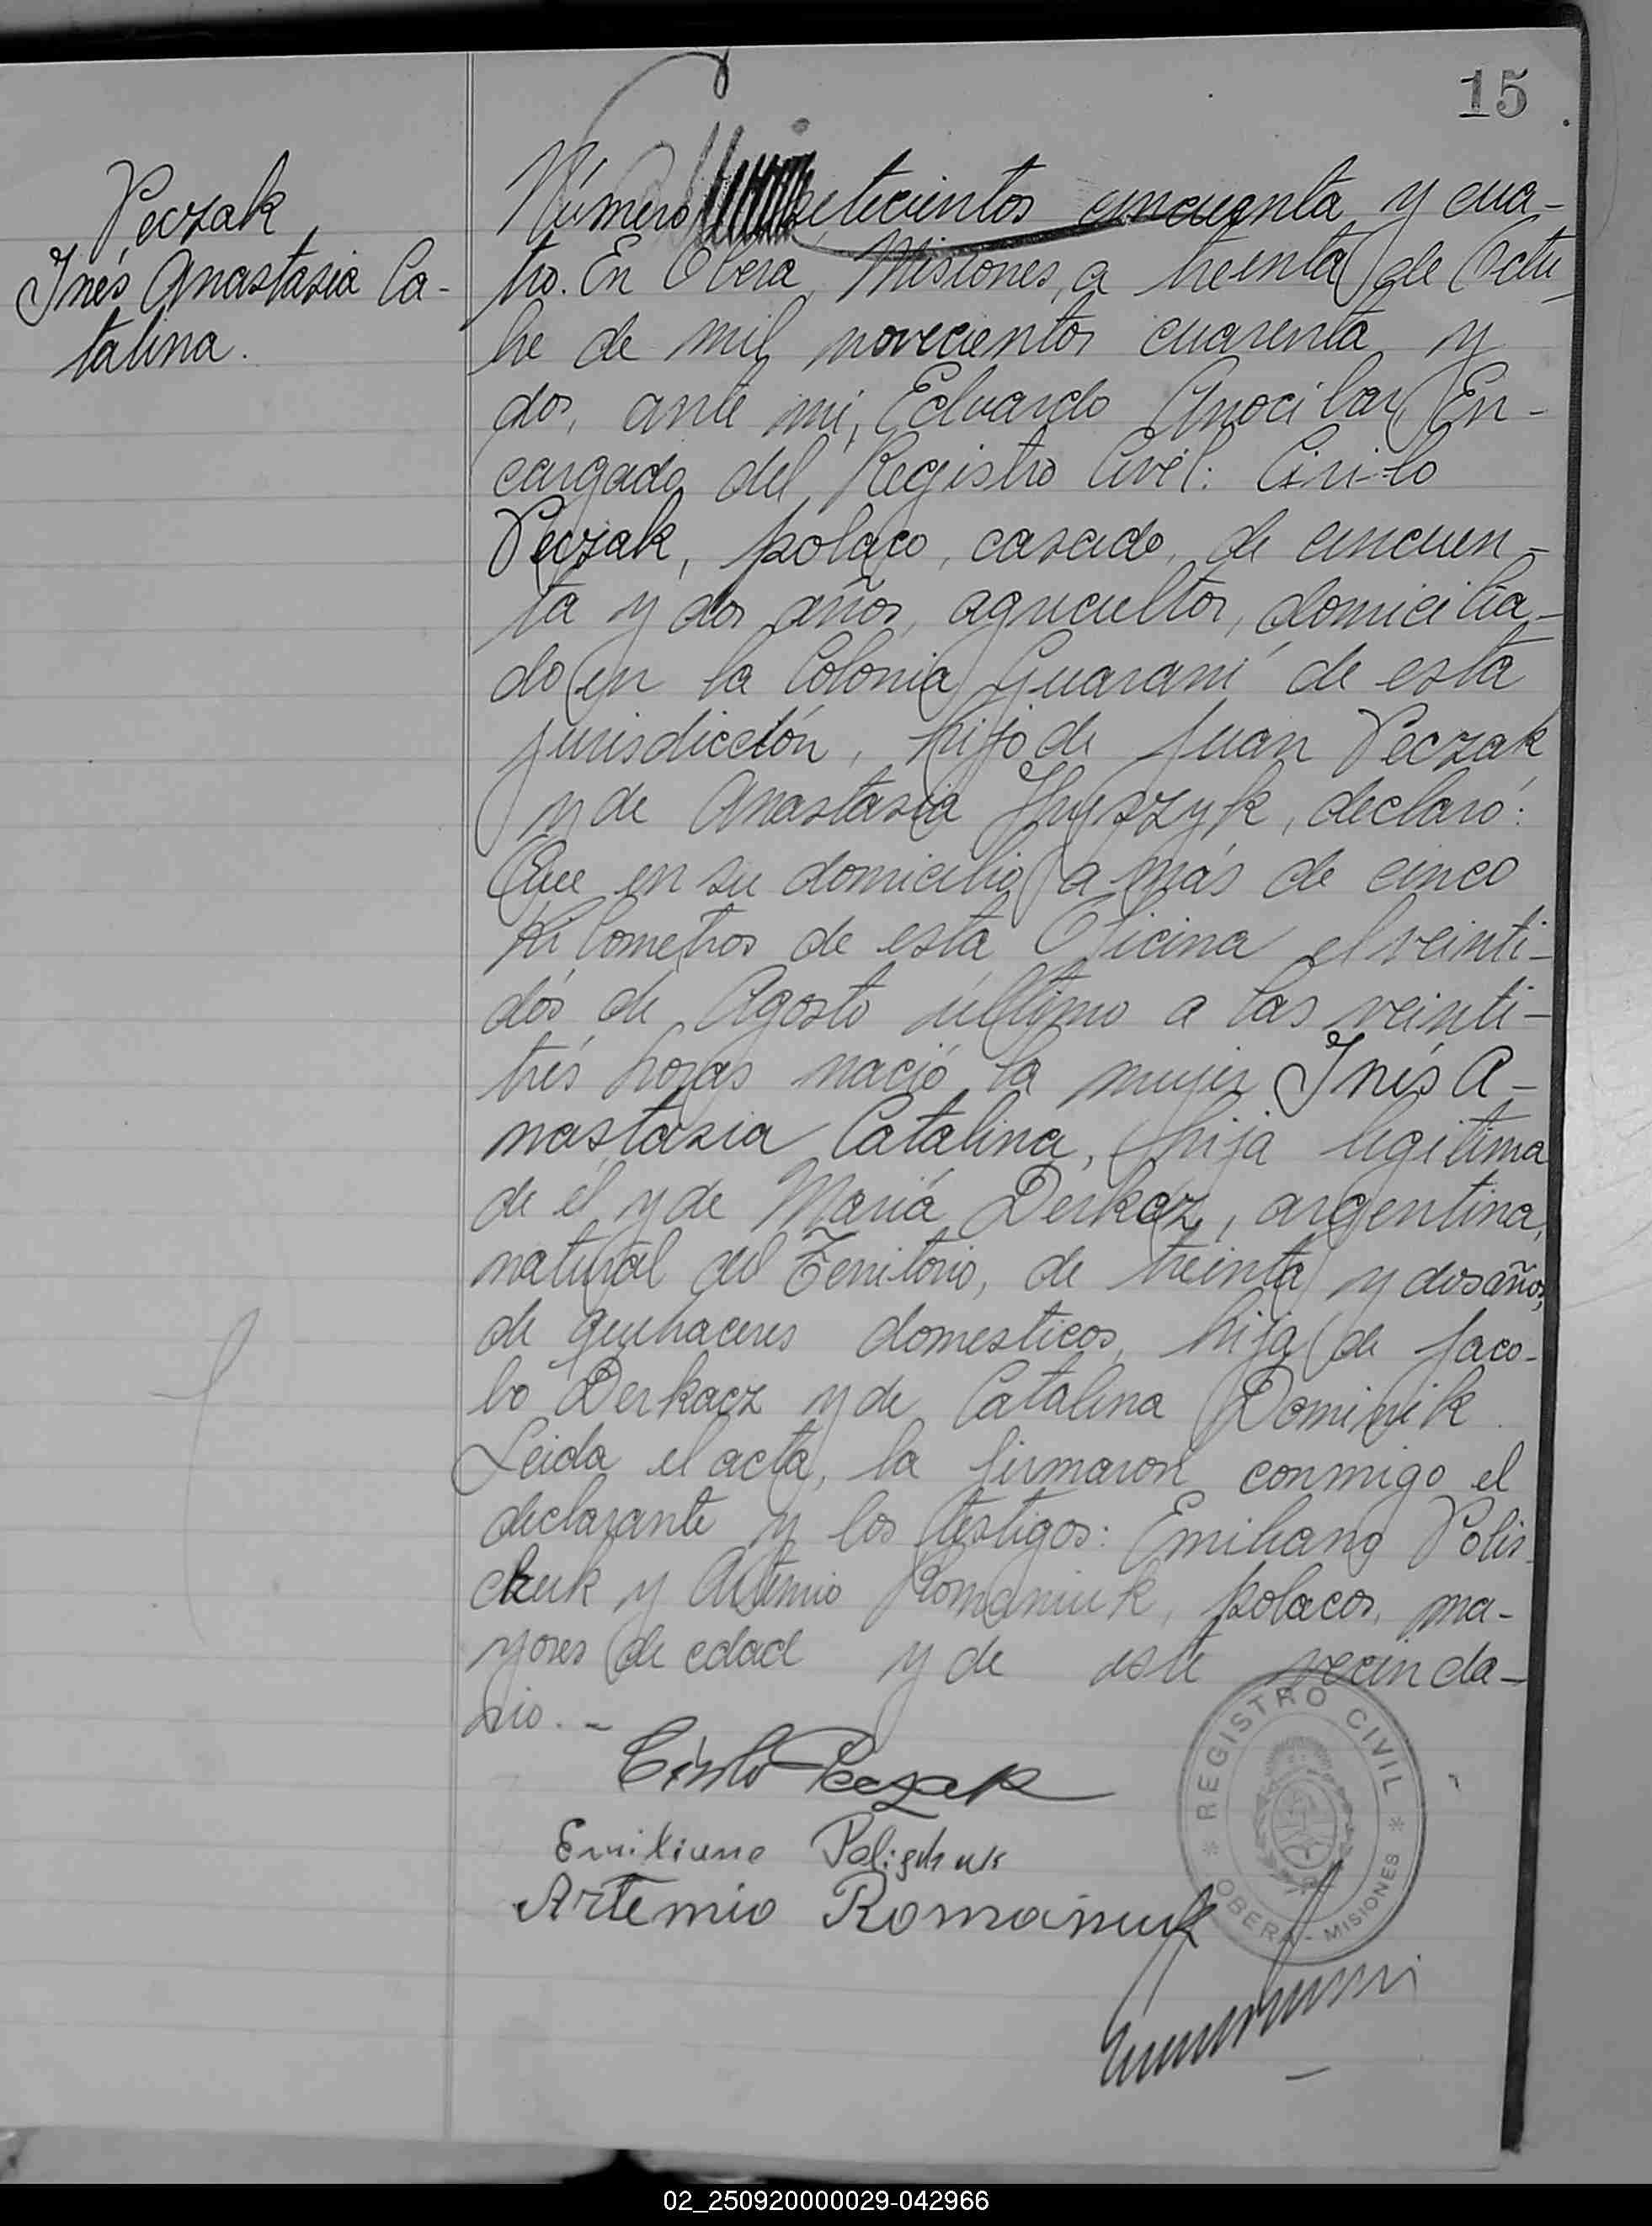 15
Peczak
Inés Anastasia Ca-
talina.
Número setecientos cincuenta y cua-
tro. En Oberá, Misiones, a treinta de Octu-
bre de mil novecientos cuarenta y
dos, ante mi, Eduardo Anocibar, En-
cargado del Registro Civil: Cirilo
Peczak, polaco, casado, de cincuen-
ta y dos años, agricultor, domicilia-
do en la Colonia Guaraní de esta
jurisdicción, hijo de Juan Peczak
y de Anastasia declaró:
Que en su domicilio a más de cinco
kilometros de esta Oficina el veinti-
dós de Agosto último a las veinti-
trés horas nació la mujer Inés A-
nastasia Catalina, hija legitima
de él y de María Derkacz, argentina,
natural del Territorio, de treinta y dos años,
de quehaceres domesticos, hija de Jaco-
bo Derkacz y de Catalina Dominik.
Leida el acta, la firmaron conmigo el
declarante y los testigos: Emiliano Polis-
chuk y Artemio Romaniuk, polacos, ma-
yores de edad y de este vecinda-
rio.-
Cirilo Peczak
Emiliano Polischuk
Artemio Romaniuk
REGISTRO CIVIL
OBERA - MISIONES
02_250920000029-042966